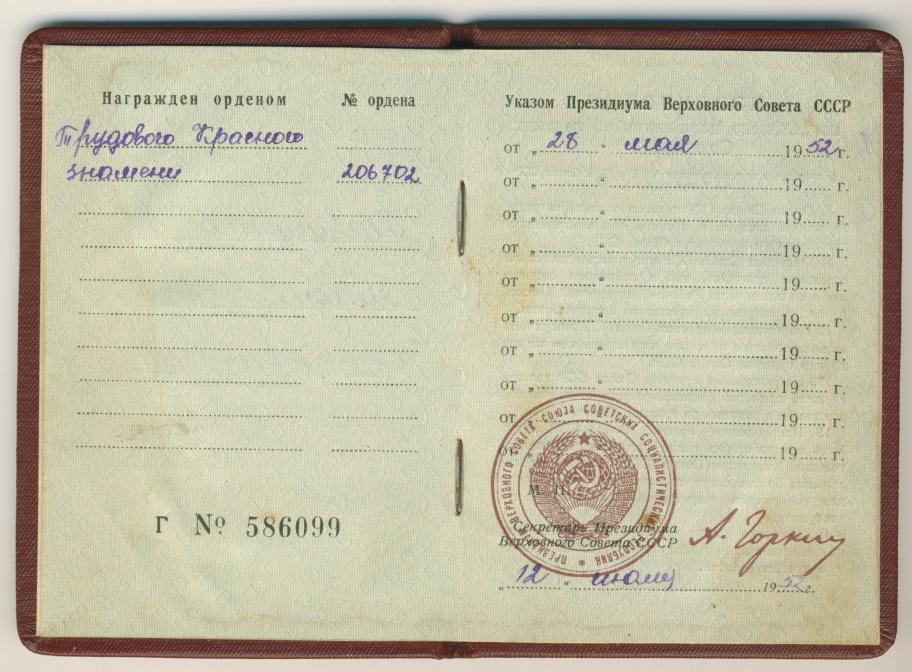 Награжден орденом
№ ордена
Трудового Красного
знамени 206702
Г № 586099
Указом Президиума Верховного Совета СССР
от „ 28 “ мая 1952 г.
от „ “ 19 г.
от „ “ 19 г.
от „ “ 19 г.
от „ “ 19 г.
от „ “ 19 г.
от „ “ 19 г.
от „ “ 19 г.
от „ “ 19 г.
от „ “ 19 г.
ПРЕЗИДИУМ ВЕРХОВНОГО СОВЕТА СОЮЗА СОВЕТСКИХ СОЦИАЛИСТИЧЕСКИХ РЕСПУБЛИК
М. П.
Секретарь Президиума
Верховного Совета СССР
А. Горкин
„ 12 “ 1952 г.